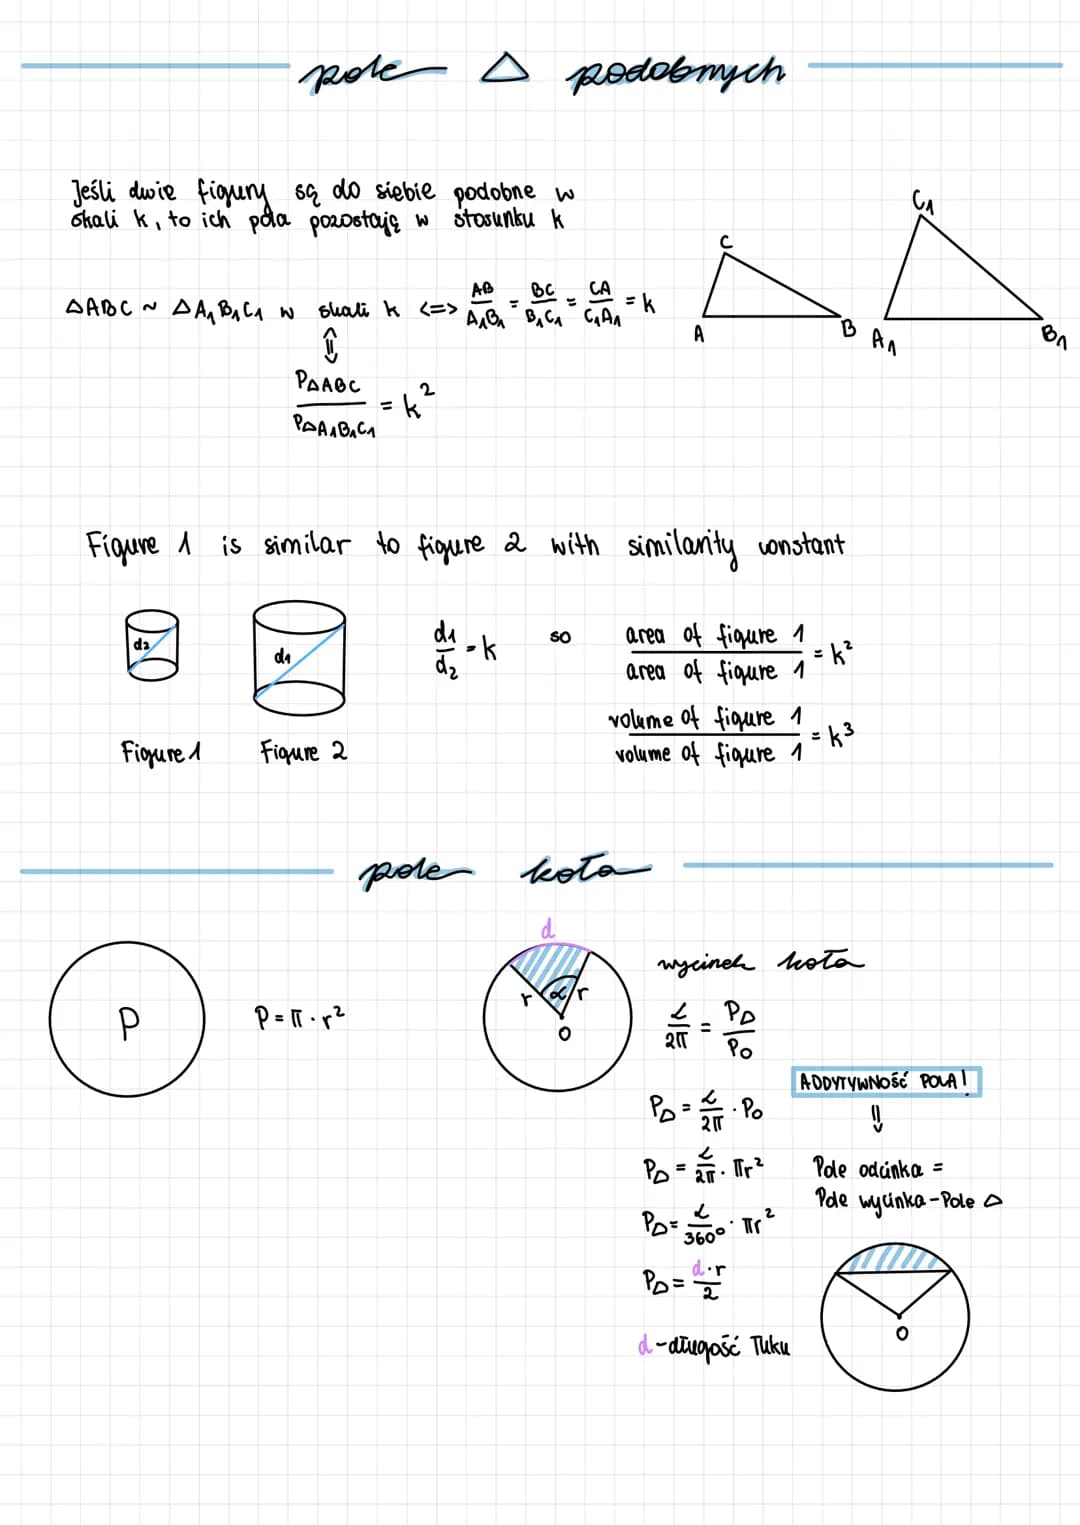 pole △ podobnych
Jeśli dwie figury są do siebie podobne w
skali k, to ich pola pozostają w stosunku k
△ABC ~ △A₁B₁C₁ w skali k <=> AB/A₁B₁ = BC/B₁C₁ = CA/C₁A₁ = k
⇕
P△ABC/P△A₁B₁C₁ = k²
C
A
B
C₁
A₁
B₁
Figure 1 is similar to figure 2 with similarity constant
d₂
d₁
d₁/d₂ = k so area of figure 1/area of figure 1 = k²
volume of figure 1/volume of figure 1 = k³
Figure 1
Figure 2
pole koła
P
P = π · r²
d
r
α
r
O
wycinek koła
α/2π = P▷/P○
P▷ = α/2π · P○
P▷ = α/2π · πr²
P▷ = α/360° · πr²
P▷ = d·r/2
d - długość łuku
ADDYTYWNOŚĆ POLA!
⇓
Pole odcinka =
Pole wycinka - Pole △
O